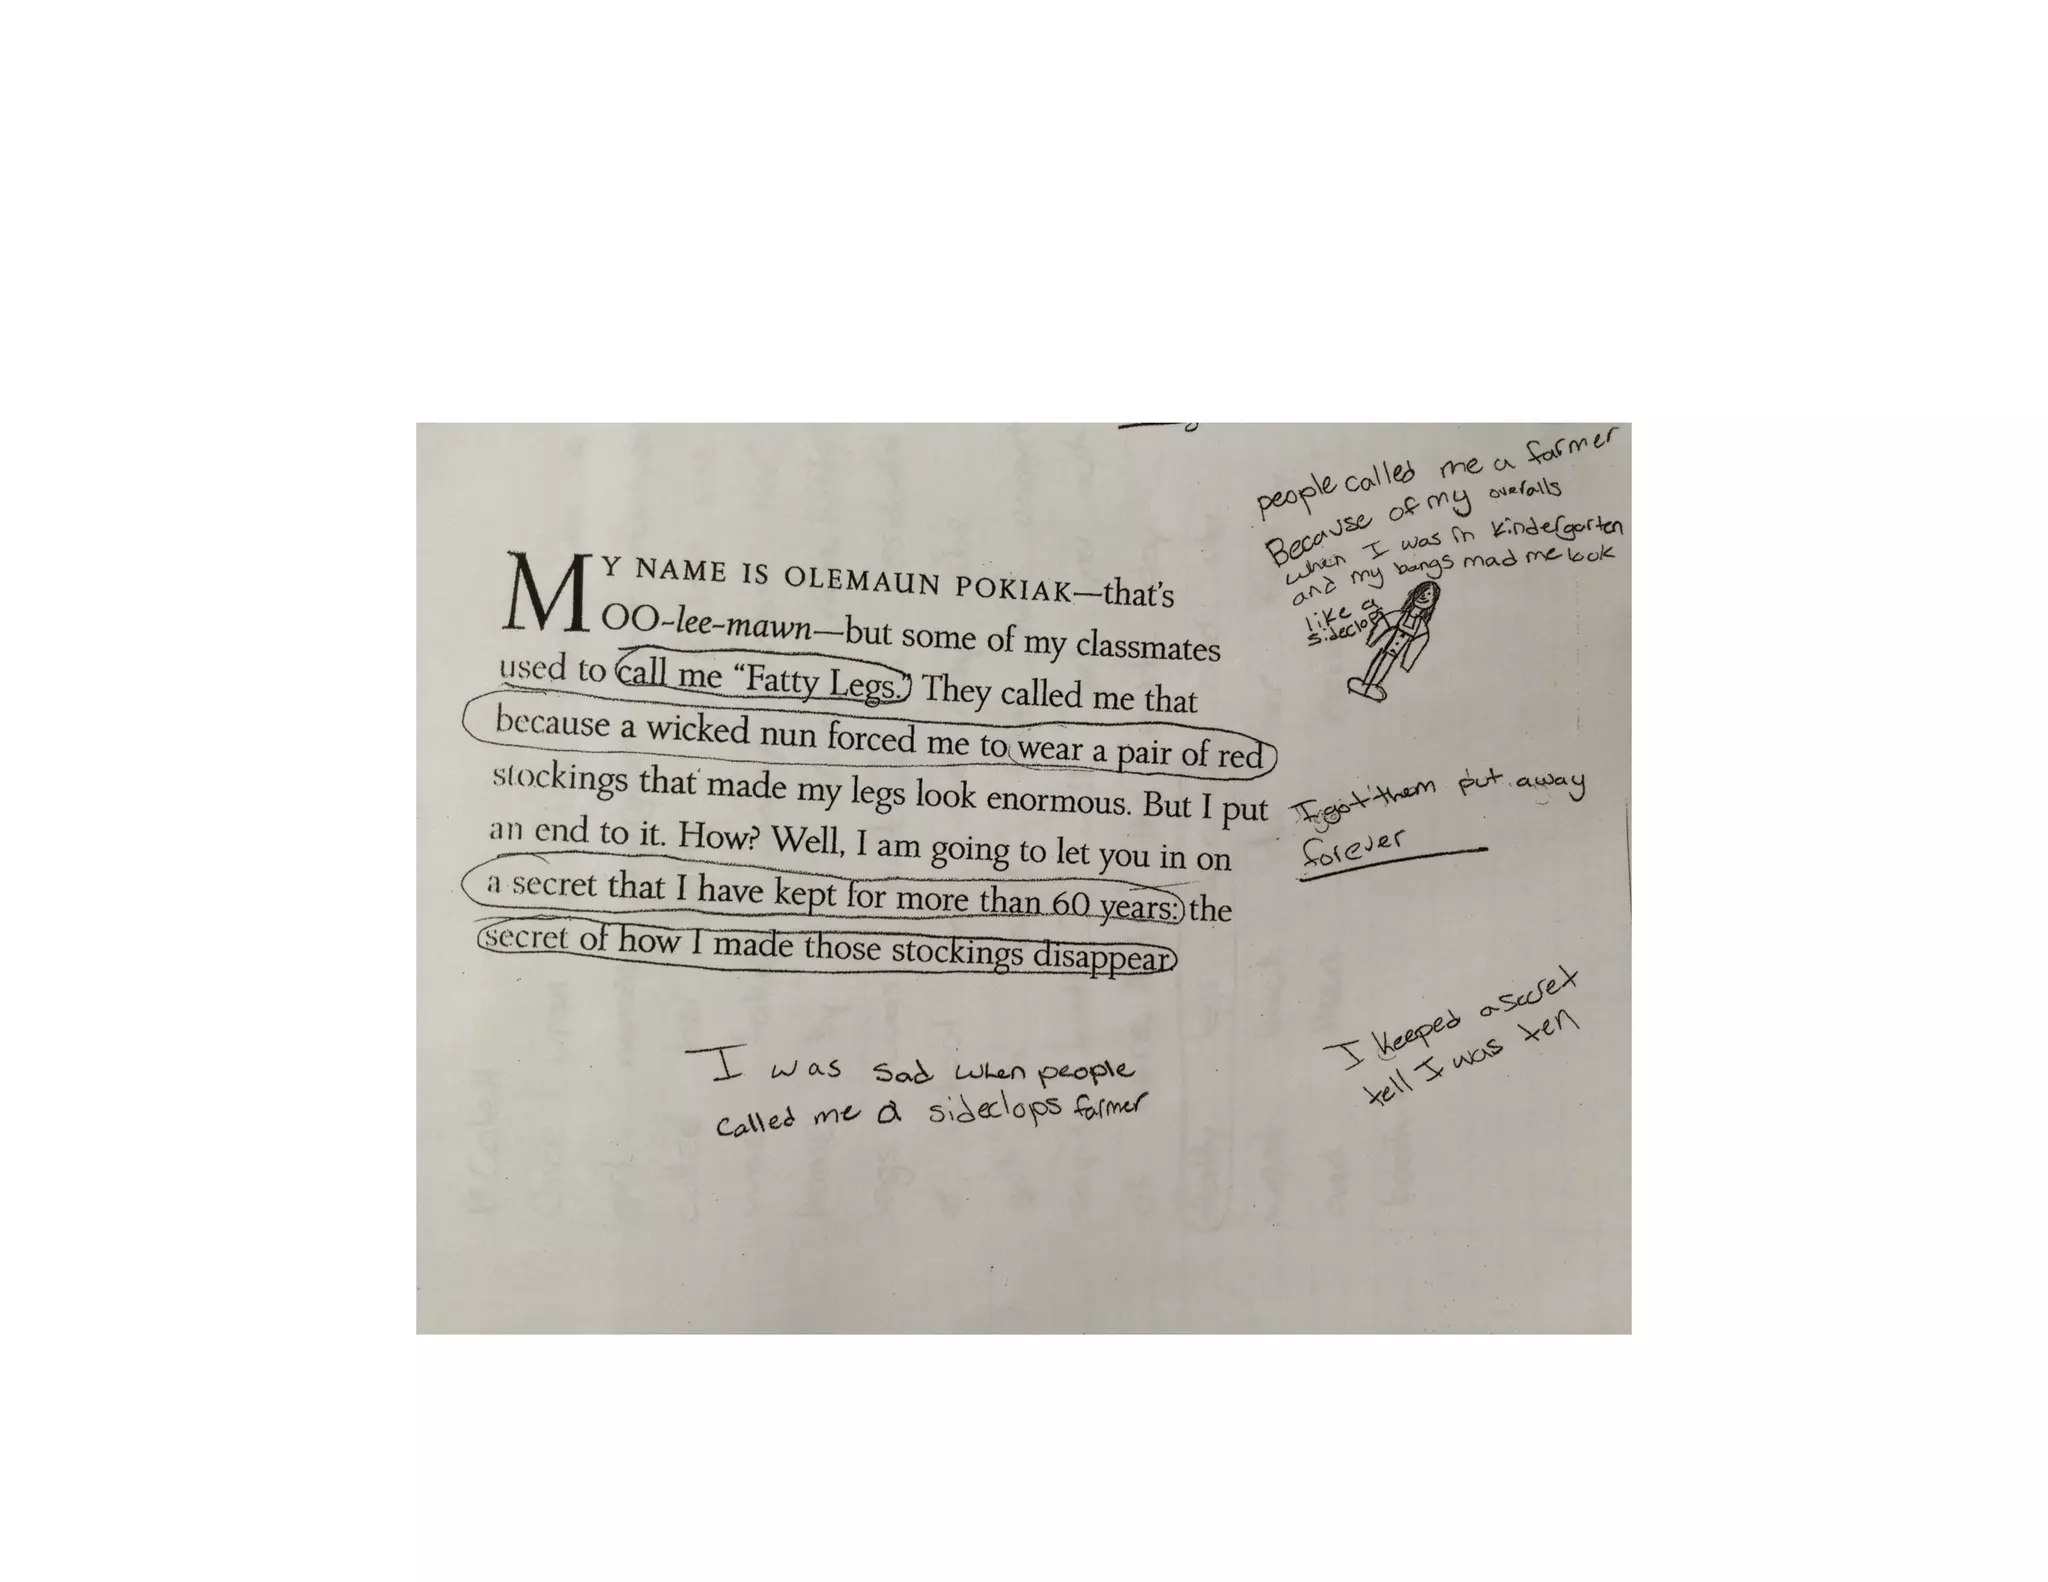 people called me a farmer
Because of my overalls
when I was in kindergarten
and my bangs mad me look
like a
sideclops
MY NAME IS OLEMAUN POKIAK—that's
OO-lee-mawn—but some of my classmates
used to call me “Fatty Legs.” They called me that
because a wicked nun forced me to wear a pair of red
stockings that made my legs look enormous. But I put
an end to it. How? Well, I am going to let you in on
a secret that I have kept for more than 60 years: the
secret of how I made those stockings disappear.
I got them put away
forever
I keeped a secret
tell I was ten
I was sad when people
called me a sideclops farmer